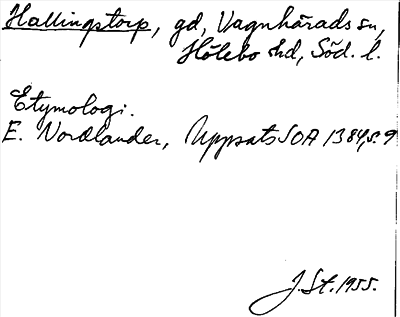 Hallingstorp, gd, Vagnhärads sn,
Hölebo hd, Söd. l.
Etymologi.
E. Nordlander, Uppsats SOA 1384, s. 9
J. St. 1955.